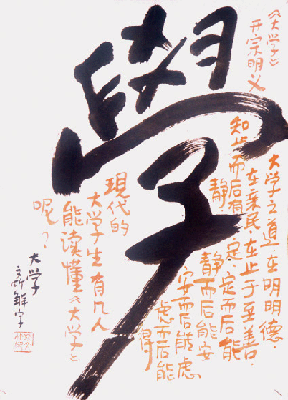 《大学》
开宗明义
大学之道在明明德·
在亲民·在止于至善·
知止而后有定·定而后能
静·静而后能安
安而后能虑
虑而后能
得
現代的
大学生有几人
能读懂《大学》
呢？
學
大学
解字